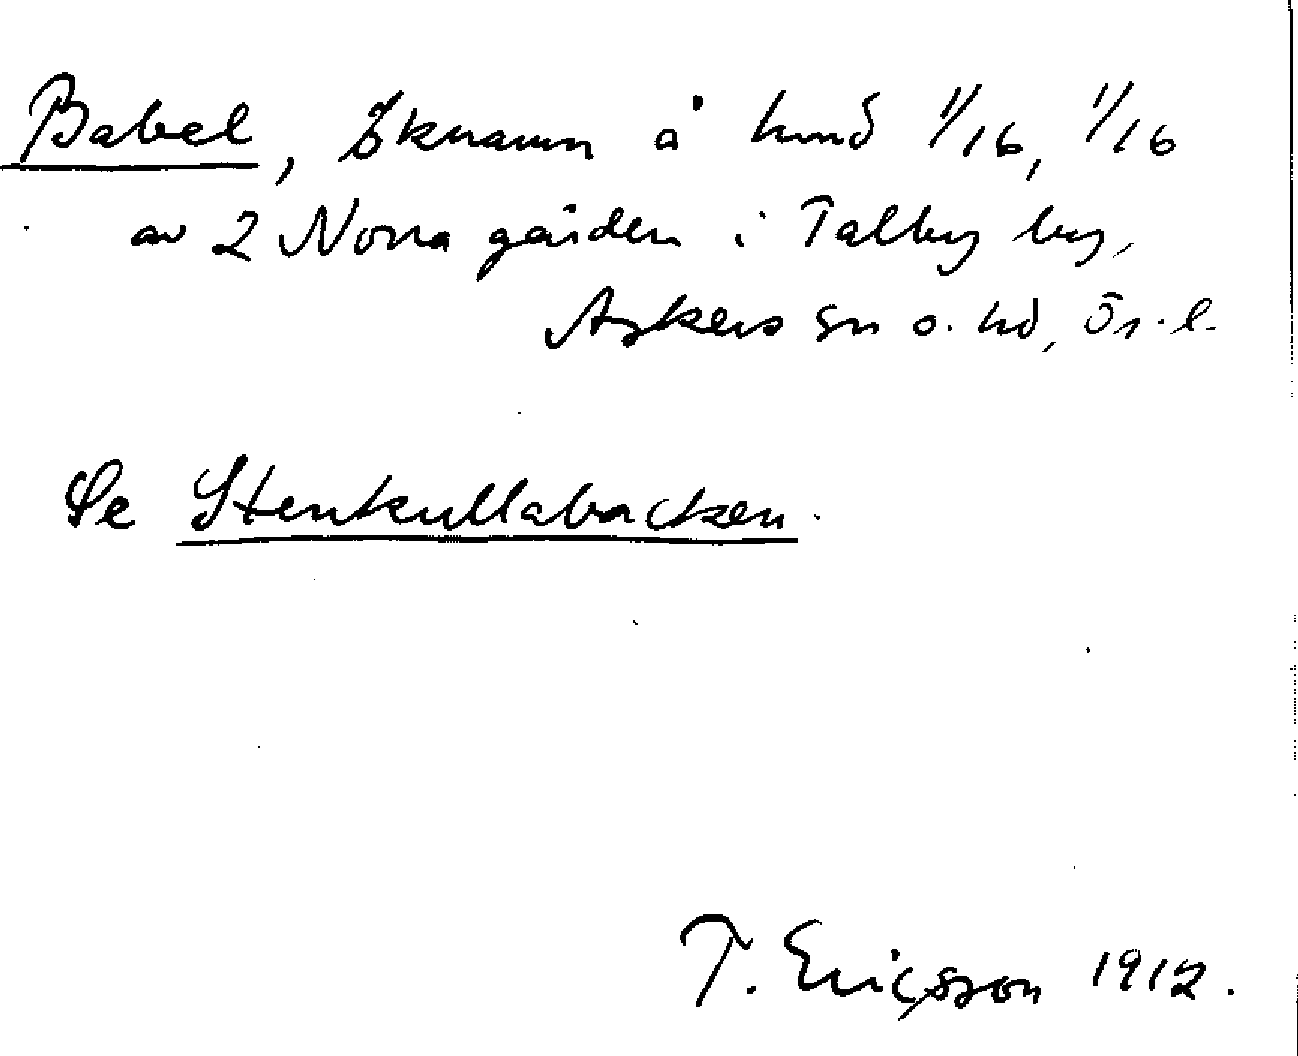 Babel, Öknamn å hmd 1/16, 1/16
av 2 Norra gården i Talby by,
Askers sn o. hd, Ör. l.
Se Stenkullabacken.
T. Ericsson 1912.